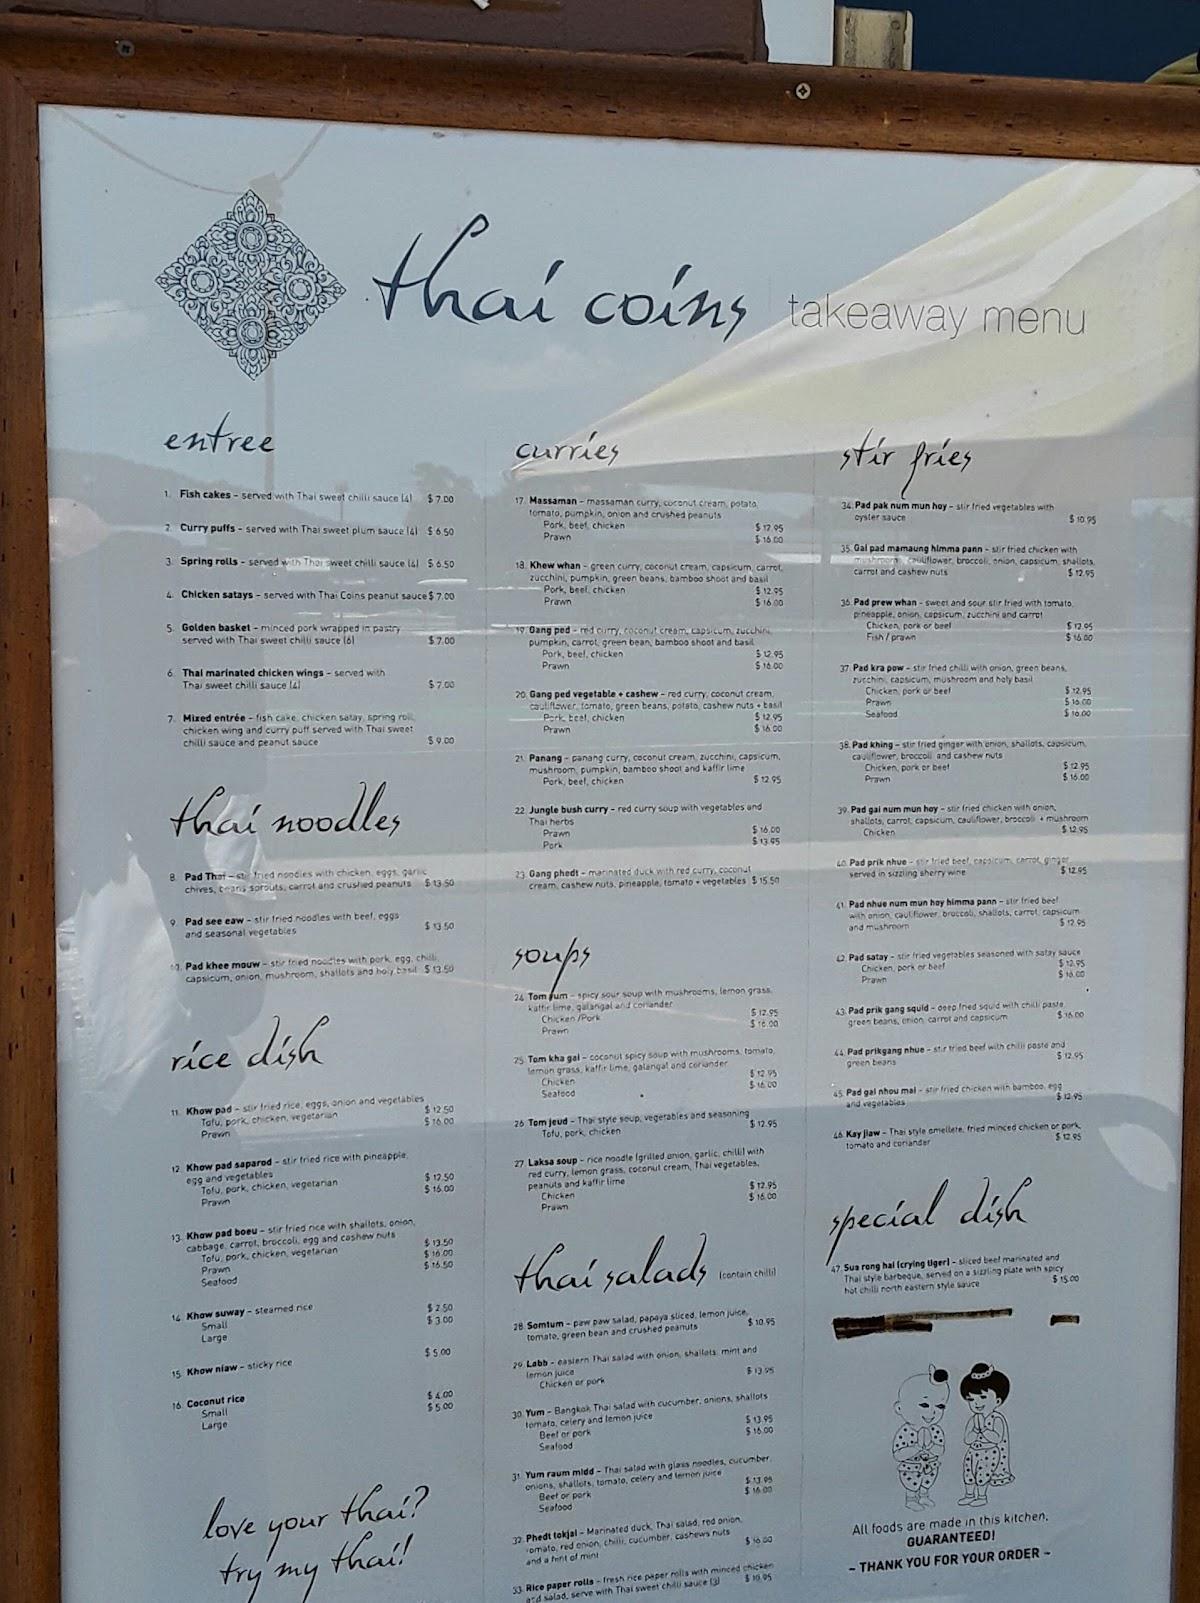 thai coins takeaway menu
entree
1. Fish cakes – served with Thai sweet chilli sauce (4) $ 7.00
2. Curry puffs – served with Thai sweet plum sauce (4) $ 6.50
3. Spring rolls – served with Thai sweet chilli sauce (4) $ 6.50
4. Chicken satays – served with Thai Coins peanut sauce $ 7.00
5. Golden basket – minced pork wrapped in pastry
served with Thai sweet chilli sauce (6) $ 7.00
6. Thai marinated chicken wings – served with
Thai sweet chilli sauce (4) $ 7.00
7. Mixed entrée – fish cake, chicken satay, spring roll,
chicken wing and curry puff served with Thai sweet
chilli sauce and peanut sauce $ 9.00
thai noodles
8. Pad Thai – stir fried noodles with chicken, eggs, garlic
chives, beans sprouts, carrot and crushed peanuts $ 13.50
9. Pad see eaw – stir fried noodles with beef, eggs
and seasonal vegetables $ 13.50
10. Pad khee mouw – stir fried noodles with pork, egg, chilli,
capsicum, onion, mushroom, shallots and holy basil $ 13.50
rice dish
11. Khow pad – stir fried rice, eggs, onion and vegetables
Tofu, pork, chicken, vegetarian $ 12.50
Prawn $ 16.00
12. Khow pad saparod – stir fried rice with pineapple,
egg and vegetables
Tofu, pork, chicken, vegetarian $ 12.50
Prawn $ 16.00
13. Khow pad boeu – stir fried rice with shallots, onion,
cabbage, carrot, broccoli, egg and cashew nuts
Tofu, pork, chicken, vegetarian $ 13.50
Prawn $ 16.00
Seafood $ 16.50
14. Khow suway – steamed rice
Small $ 2.50
Large $ 3.00
15. Khow niaw – sticky rice $ 5.00
16. Coconut rice
Small $ 4.00
Large $ 5.00
love your thai?
try my thai!
curries
17. Massaman – massaman curry, coconut cream, potato,
tomato, pumpkin, onion and crushed peanuts
Pork, beef, chicken $ 12.95
Prawn $ 16.00
18. Khew whan – green curry, coconut cream, capsicum, carrot,
zucchini, pumpkin, green beans, bamboo shoot and basil
Pork, beef, chicken $ 12.95
Prawn $ 16.00
19. Gang ped – red curry, coconut cream, capsicum, zucchini,
pumpkin, carrot, green bean, bamboo shoot and basil
Pork, beef, chicken $ 12.95
Prawn $ 16.00
20. Gang ped vegetable + cashew – red curry, coconut cream,
cauliflower, tomato, green beans, potato, cashew nuts + basil
Pork, beef, chicken $ 12.95
Prawn $ 16.00
21. Panang – panang curry, coconut cream, zucchini, capsicum,
mushroom, pumpkin, bamboo shoot and kaffir lime
Pork, beef, chicken $ 12.95
22. Jungle bush curry – red curry soup with vegetables and
Thai herbs
Prawn $ 16.00
Pork $ 13.95
23. Gang phedt – marinated duck with red curry, coconut
cream, cashew nuts, pineapple, tomato + vegetables $ 15.50
soups
24. Tom yum – spicy sour soup with mushrooms, lemon grass,
kaffir lime, galangal and coriander
Chicken /Pork $ 12.95
Prawn $ 16.00
25. Tom kha gai – coconut spicy soup with mushrooms, tomato,
lemon grass, kaffir lime, galangal and coriander
Chicken $ 12.95
Seafood $ 16.00
26. Tom jeud – Thai style soup, vegetables and seasoning
Tofu, pork, chicken $ 12.95
27. Laksa soup – rice noodle (grilled onion, garlic, chilli) with
red curry, lemon grass, coconut cream, Thai vegetables,
peanuts and kaffir lime
Chicken $ 12.95
Prawn $ 16.00
thai salads (contain chilli)
28. Somtum – paw paw salad, papaya sliced, lemon juice,
tomato, green bean and crushed peanuts $ 10.95
29. Labb – eastern Thai salad with onion, shallots, mint and
lemon juice
Chicken or pork $ 13.95
30. Yum – Bangkok Thai salad with cucumber, onions, shallots
tomato, celery and lemon juice
Beef or pork $ 13.95
Seafood $ 16.00
31. Yum raum midd – Thai salad with glass noodles, cucumber,
onions, shallots, tomato, celery and lemon juice
Beef or pork $ 13.95
Seafood $ 16.00
32. Phedt tokjai – Marinated duck, Thai salad, red onion,
tomato, red onion, chilli, cucumber, cashews nuts
and a hint of mint $ 16.00
33. Rice paper rolls – fresh rice paper rolls with minced chicken
and salad, serve with Thai sweet chilli sauce (3) $ 10.95
stir fries
34. Pad pak num mun hoy – stir fried vegetables with
oyster sauce $ 10.95
35. Gai pad mamaung himma pann – stir fried chicken with
mushroom, cauliflower, broccoli, onion, capsicum, shallots,
carrot and cashew nuts $ 12.95
36. Pad prew whan – sweet and sour stir fried with tomato,
pineapple, onion, capsicum, zucchini and carrot
Chicken, pork or beef $ 12.95
Fish / prawn $ 16.00
37. Pad kra pow – stir fried chilli with onion, green beans,
zucchini, capsicum, mushroom and holy basil
Chicken, pork or beef $ 12.95
Prawn $ 16.00
Seafood $ 16.00
38. Pad khing – stir fried ginger with onion, shallots, capsicum,
cauliflower, broccoli and cashew nuts
Chicken, pork or beef $ 12.95
Prawn $ 16.00
39. Pad gai num mun hoy – stir fried chicken with onion,
shallots, carrot, capsicum, cauliflower, broccoli + mushroom
Chicken $ 12.95
40. Pad prik nhue – stir fried beef, capsicum, carrot, ginger
served in sizzling sherry wine $ 12.95
41. Pad nhue num mun hoy himma pann – stir fried beef
with onion, cauliflower, broccoli, shallots, carrot, capsicum
and mushroom $ 12.95
42. Pad satay – stir fried vegetables seasoned with satay sauce
Chicken, pork or beef $ 12.95
Prawn $ 16.00
43. Pad prik gang squid – deep fried squid with chilli paste,
green beans, onion, carrot and capsicum $ 16.00
44. Pad prikgang nhue – stir fried beef with chilli paste and
green beans $ 12.95
45. Pad gai nhou mai – stir fried chicken with bamboo, egg
and vegetables $ 12.95
46. Kay jiaw – Thai style omellete, fried minced chicken or pork,
tomato and coriander $ 12.95
special dish
47. Sua rong hai (crying tiger) – sliced beef marinated and
Thai style barbeque, served on a sizzling plate with spicy
hot chilli north eastern style sauce $ 15.00
All foods are made in this kitchen,
GUARANTEED!
– THANK YOU FOR YOUR ORDER –